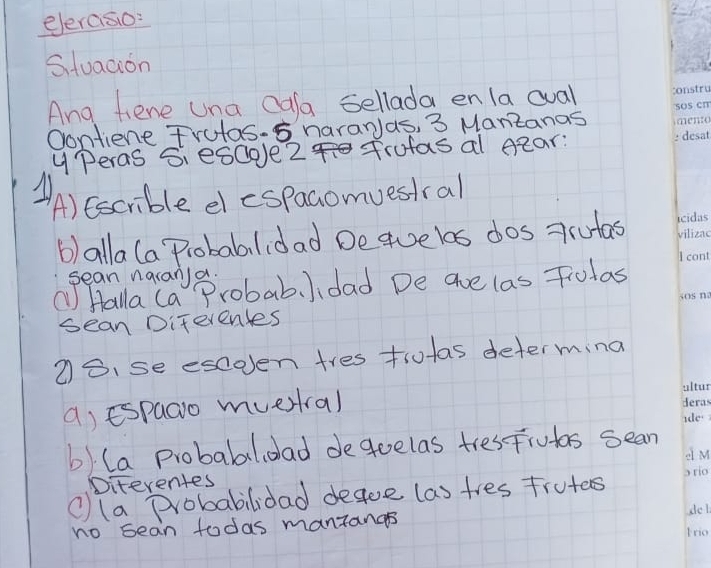 ejercisio:
Situación
Ana tiene una caja sellada en la cual
contiene Frutas. 5 naranjas, 3 Manzanas
4 Peras Si escoje 2 frutas al Azar:
1)
A) Escrible el espaciomuestral
b) alla la Probabilidad De que las dos Frutas
sean naranja.
c) Halla la Probabilidad De que las Frutas
sean Diferentes
2) Si se escojen tres frutas determina
a) Espacio muestral
b) La Probabilidad de que las tres Frutas Sean
Diferentes
c) la Probabilidad de que las tres Frutas
no sean todas manzanas
constru
sos em
mento
desat
icidas
vilizac
l cont
sos na
ultur
deras
ide
el M
rio
de l